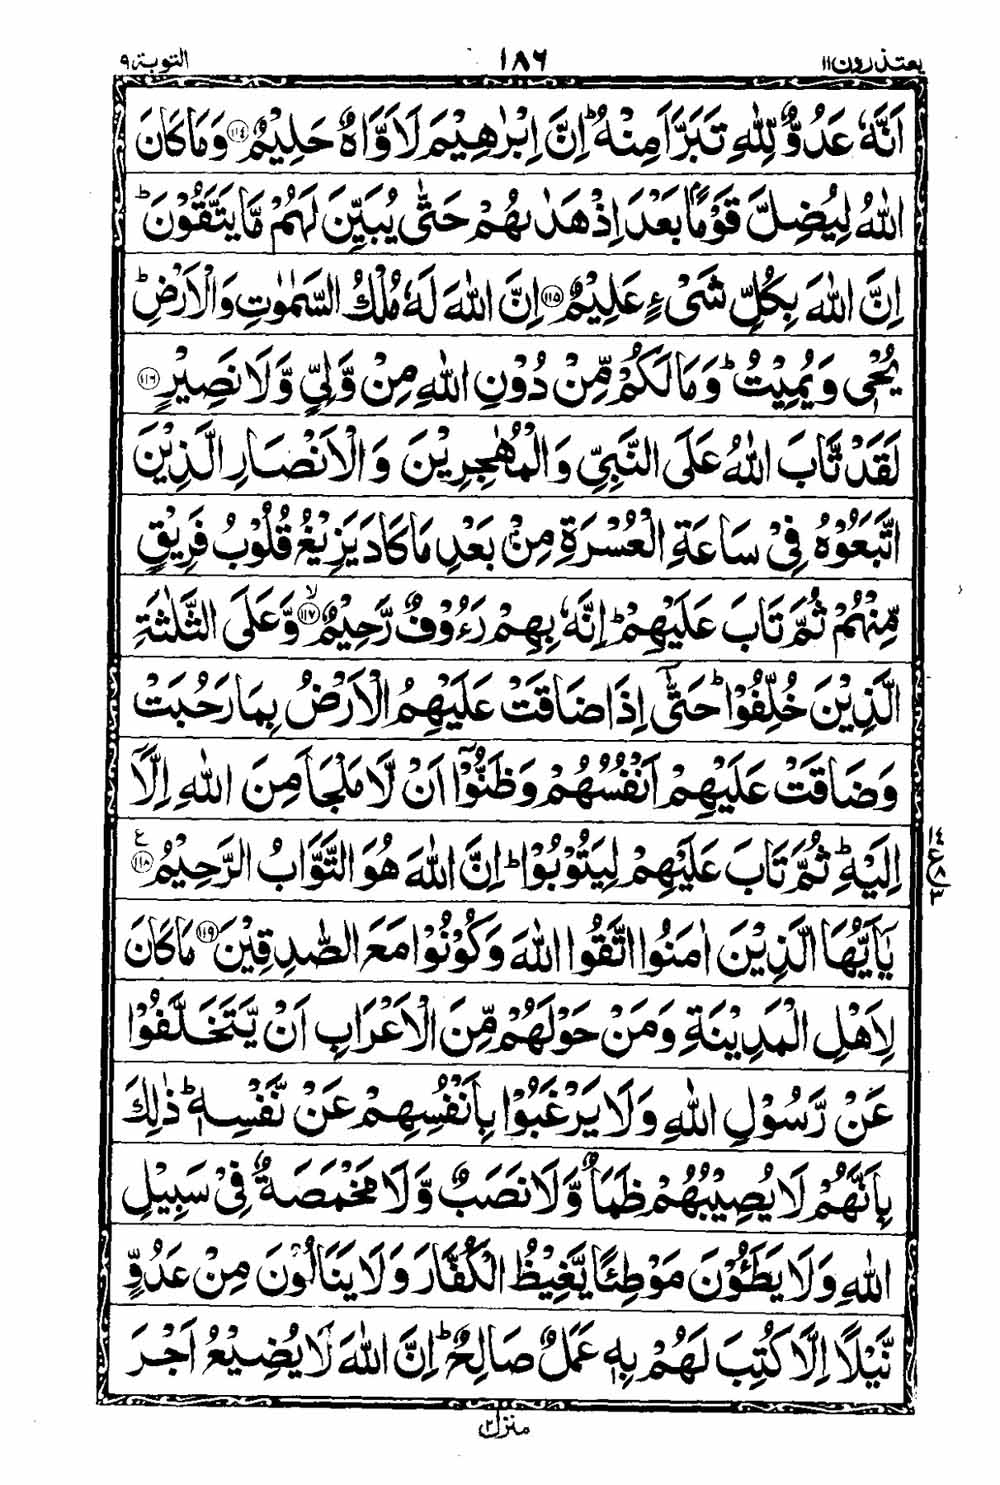 یعتذرون ۱۱ ۱۸۶ التوبة ۹
اَنَّهٗ عَدُوٌّ لِّلّٰهِ تَبَرَّاَ مِنْهُ ؕ اِنَّ اِبْرٰهِیْمَ لَاَوَّاهٌ حَلِیْمٌ ﴿۱۱۴﴾ وَمَا كَانَ
اللّٰهُ لِیُضِلَّ قَوْمًۢا بَعْدَ اِذْ هَدٰىهُمْ حَتّٰی یُبَیِّنَ لَهُمْ مَّا یَتَّقُوْنَ ؕ
اِنَّ اللّٰهَ بِكُلِّ شَیْءٍ عَلِیْمٌ ﴿۱۱۵﴾ اِنَّ اللّٰهَ لَهٗ مُلْكُ السَّمٰوٰتِ وَالْاَرْضِ ؕ
یُحْیٖ وَیُمِیْتُ ؕ وَمَا لَكُمْ مِّنْ دُوْنِ اللّٰهِ مِنْ وَّلِیٍّ وَّلَا نَصِیْرٍ ﴿۱۱۶﴾
لَقَدْ تَّابَ اللّٰهُ عَلَی النَّبِیِّ وَالْمُهٰجِرِیْنَ وَالْاَنْصَارِ الَّذِیْنَ
اتَّبَعُوْهُ فِیْ سَاعَةِ الْعُسْرَةِ مِنْۢ بَعْدِ مَا كَادَ یَزِیْغُ قُلُوْبُ فَرِیْقٍ
مِّنْهُمْ ثُمَّ تَابَ عَلَیْهِمْ ؕ اِنَّهٗ بِهِمْ رَءُوْفٌ رَّحِیْمٌ ﴿۱۱۷﴾ۙ وَّعَلَی الثَّلٰثَةِ
الَّذِیْنَ خُلِّفُوْا ؕ حَتّٰۤی اِذَا ضَاقَتْ عَلَیْهِمُ الْاَرْضُ بِمَا رَحُبَتْ
وَضَاقَتْ عَلَیْهِمْ اَنْفُسُهُمْ وَظَنُّوْۤا اَنْ لَّا مَلْجَاَ مِنَ اللّٰهِ اِلَّاۤ
اِلَیْهِ ؕ ثُمَّ تَابَ عَلَیْهِمْ لِیَتُوْبُوْا ؕ اِنَّ اللّٰهَ هُوَ التَّوَّابُ الرَّحِیْمُ ﴿۱۱۸﴾ ع
۱۴ ع ۸ ۳
یٰۤاَیُّهَا الَّذِیْنَ اٰمَنُوا اتَّقُوا اللّٰهَ وَكُوْنُوْا مَعَ الصّٰدِقِیْنَ ﴿۱۱۹﴾ مَا كَانَ
لِاَهْلِ الْمَدِیْنَةِ وَمَنْ حَوْلَهُمْ مِّنَ الْاَعْرَابِ اَنْ یَّتَخَلَّفُوْا
عَنْ رَّسُوْلِ اللّٰهِ وَلَا یَرْغَبُوْا بِاَنْفُسِهِمْ عَنْ نَّفْسِهٖ ؕ ذٰلِكَ
بِاَنَّهُمْ لَا یُصِیْبُهُمْ ظَمَاٌ وَّلَا نَصَبٌ وَّلَا مَخْمَصَةٌ فِیْ سَبِیْلِ
اللّٰهِ وَلَا یَطَـُٔوْنَ مَوْطِئًا یَّغِیْظُ الْكُفَّارَ وَلَا یَنَالُوْنَ مِنْ عَدُوٍّ
نَّیْلًا اِلَّا كُتِبَ لَهُمْ بِهٖ عَمَلٌ صَالِحٌ ؕ اِنَّ اللّٰهَ لَا یُضِیْعُ اَجْرَ
منزل ۲